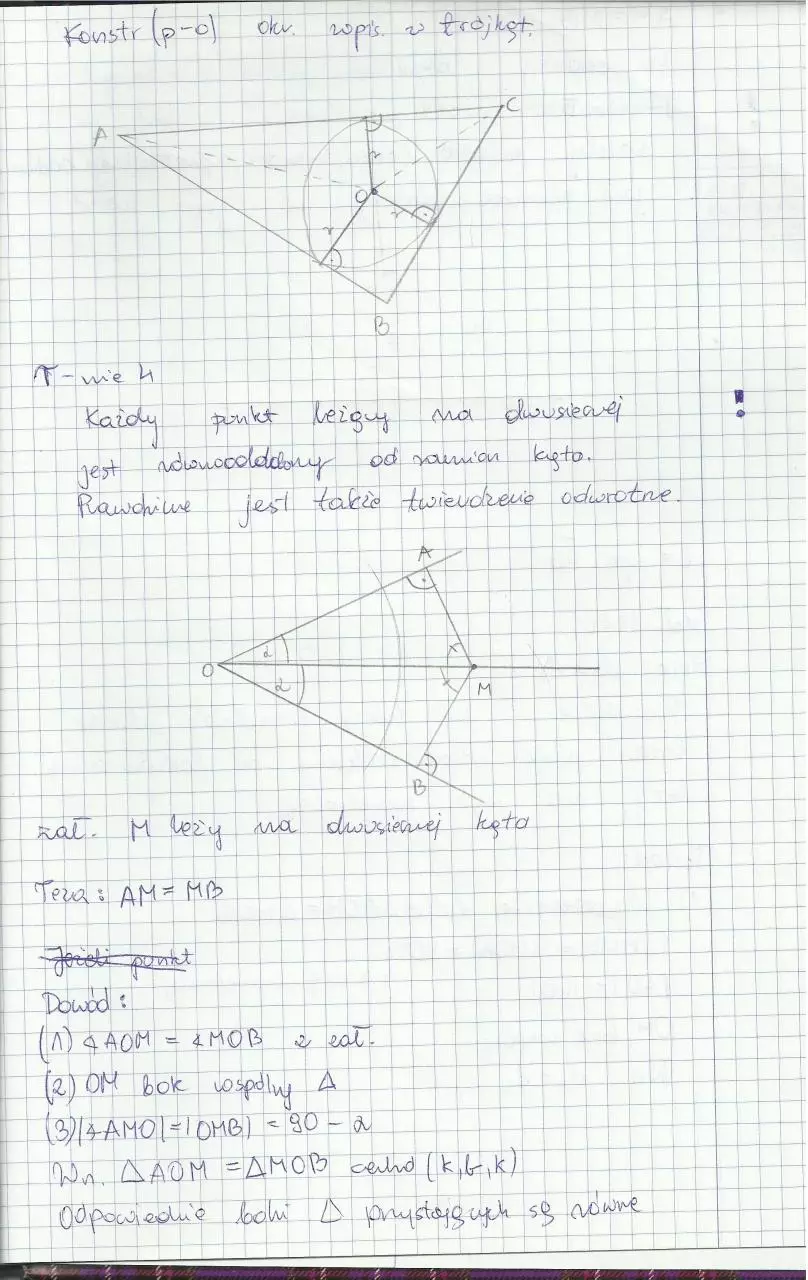 Konstr (p-o) okr. wpis. w trójkąt.
C
A
r
O
r
r
B
T-nie 4
Każdy punkt leżący na dwusiecznej
!
jest równooddalony od ramion kąta.
Prawdziwe jest także twierdzenie odwrotne.
A
α
x
O
α
x
M
B
zał. M leży na dwusiecznej kąta
Teza: AM = MB
Jeżeli punkt
Dowód:
(1) ∢AOM = ∢MOB z zał.
(2) OM bok wspólny Δ
(3) |∢AMO| = |OMB| = 90 - α
Wn. ΔAOM = ΔMOB cecha (k,b,k)
Odpowiednie boki Δ przystających są równe